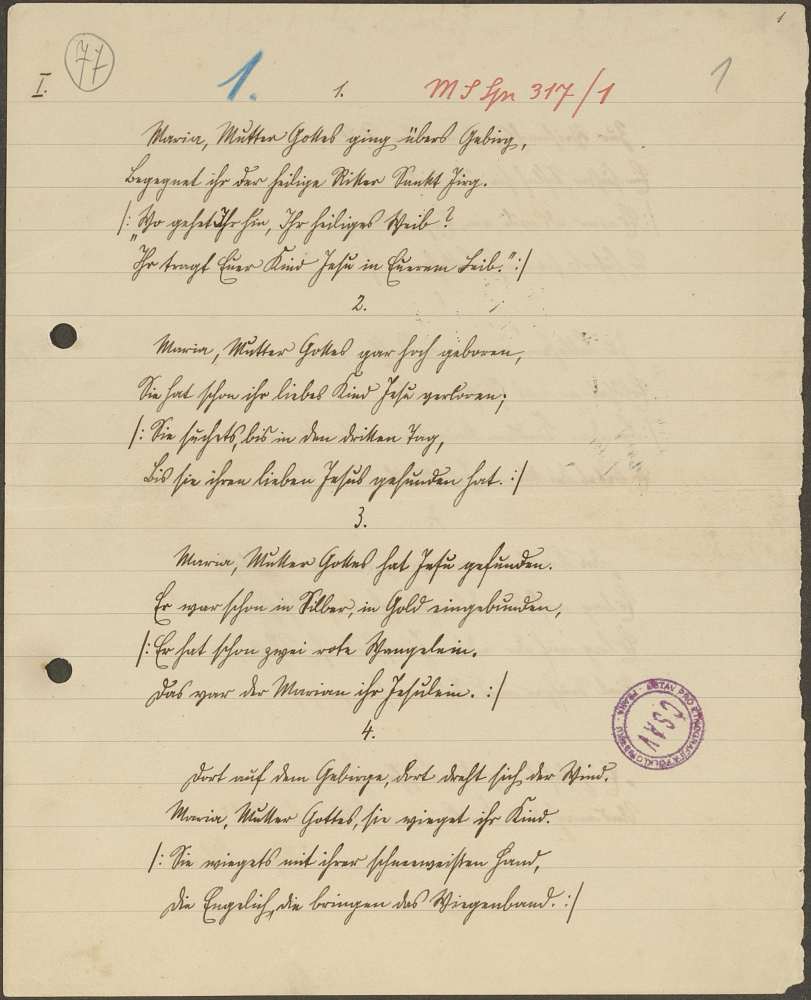 1
77
I. 1. 1. MS Spn 317/1 1
Maria, Mutter Gottes ging übers Gebirg,
Begegnet ihr der heilige Ritter Sankt Jirg.
/: „Wo gehet Ihr hin, Ihr heiliges Weib?
Ihr tragt Euer Kind Jesu in Euerem Leib.“ :/
2.
Maria, Mutter Gottes gar hoch geboren,
Sie hat schon ihr liebes Kind Jesu verloren;
/: Sie suchets, bis in den dritten Tag,
Bis sie ihren lieben Jesus gefunden hat. :/
3.
Maria, Mutter Gottes hat Jesu gefunden.
Er war schon in Silber, in Gold eingebunden,
/: Er hat schon zwei rote Wangelein.
Das war der Marian ihr Jesulein. :/
4.
Dort auf dem Gebirge, dort dreht sich der Wind.
Maria, Mutter Gottes, sie wieget ihr Kind.
/: Sie wiegets mit ihrer schneeweißen Hand,
Die Engelich, die bringen das Wiegenband. :/
ÚSTAV PRO ETNOGRAFII A FOLKLORISTIKU · PRAHA ·
ČSAV